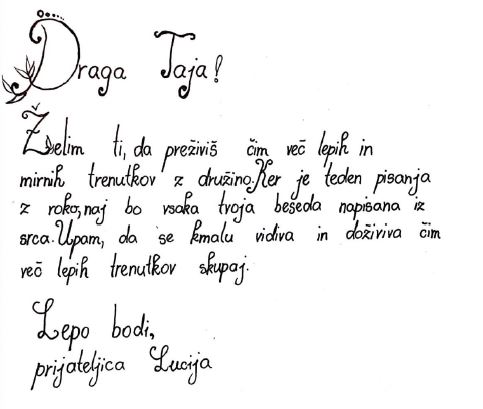 Draga Taja!
Želim ti, da preživiš čim več lepih in
mirnih trenutkov z družino. Ker je teden pisanja
z roko, naj bo vsaka tvoja beseda napisana iz
srca. Upam, da se kmalu vidiva in doživiva čim
več lepih trenutkov skupaj.
Lepo bodi,
prijateljica Lucija